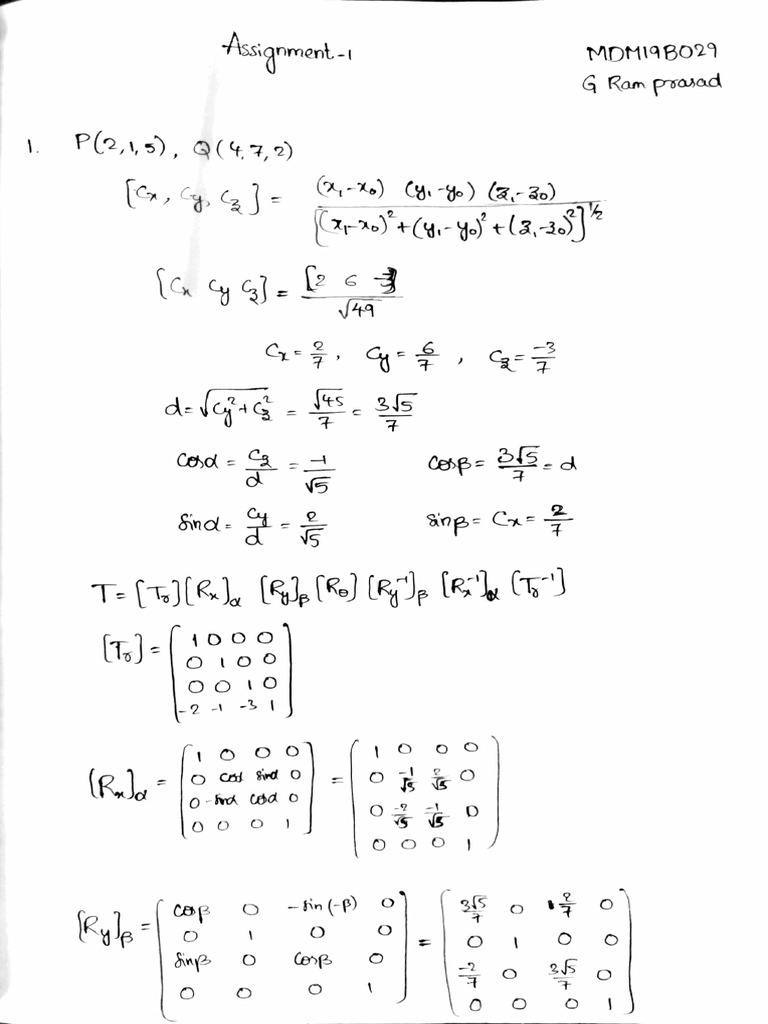 Assignment-1
MDM19B029
G Ram prasad
1. P(2,1,5), Q(4,7,2)
[Cx, Cy, Cz] = (x₁-x₀) (y₁-y₀) (z₁-z₀) / [(x₁-x₀)²+(y₁-y₀)²+(z₁-z₀)²]^1/2
[Cx Cy Cz] = [2 6 -3] / √49
Cx = 2/7, Cy = 6/7, Cz = -3/7
d = √(Cy²+Cz²) = √45/7 = 3√5/7
cosα = Cz/d = -1/√5 cosβ = 3√5/7 = d
sinα = Cy/d = 2/√5 sinβ = Cx = 2/7
T = [Tr][Rx]α [Ry]β [Rθ] [Ry⁻¹]β [Rx⁻¹]α [Tr⁻¹]
[Tr] =
1 0 0 0
0 1 0 0
0 0 1 0
-2 -1 -3 1
[Rx]α = =
1 0 0 0 1 0 0 0
0 cosα sinα 0 0 -1/√5 2/√5 0
0 -sinα cosα 0 0 -2/√5 -1/√5 0
0 0 0 1 0 0 0 1
[Ry]β = =
cosβ 0 -sin(-β) 0 3√5/7 0 2/7 0
0 1 0 0 0 1 0 0
sinβ 0 cosβ 0 -2/7 0 3√5/7 0
0 0 0 1 0 0 0 1